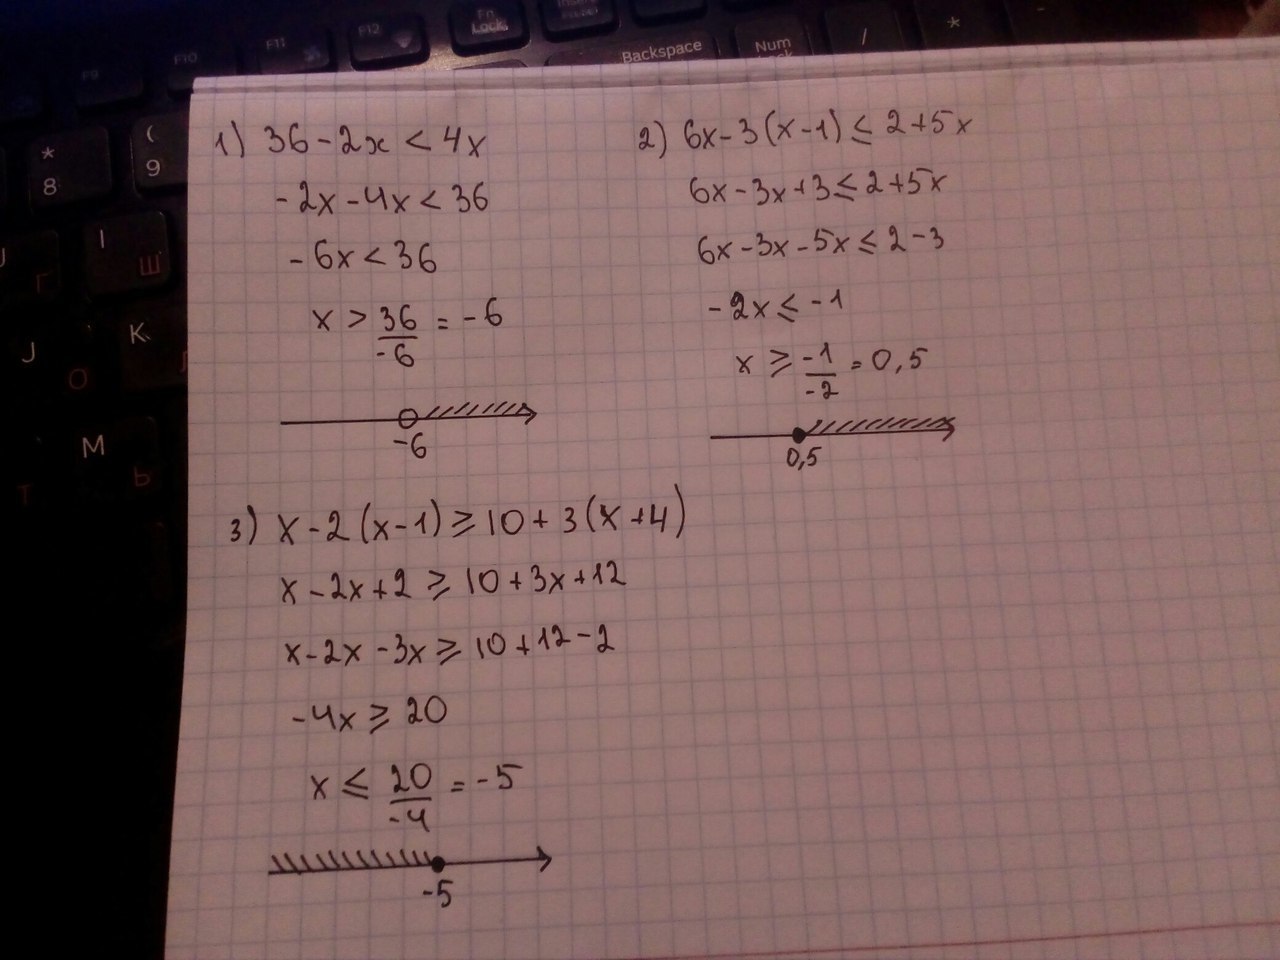 F9 F10 F11 F12 Fn Lock Insert
Backspace Num Lock / * -
* 8 ( 9
Г I Ш
J О K
М Ь
Т
1) 36 - 2x < 4x
-2x - 4x < 36
-6x < 36
x > 36/-6 = -6
-6
2) 6x - 3(x - 1) ≤ 2 + 5x
6x - 3x + 3 ≤ 2 + 5x
6x - 3x - 5x ≤ 2 - 3
-2x ≤ -1
x ≥ -1/-2 = 0,5
0,5
3) x - 2(x - 1) ≥ 10 + 3(x + 4)
x - 2x + 2 ≥ 10 + 3x + 12
x - 2x - 3x ≥ 10 + 12 - 2
-4x ≥ 20
x ≤ 20/-4 = -5
-5